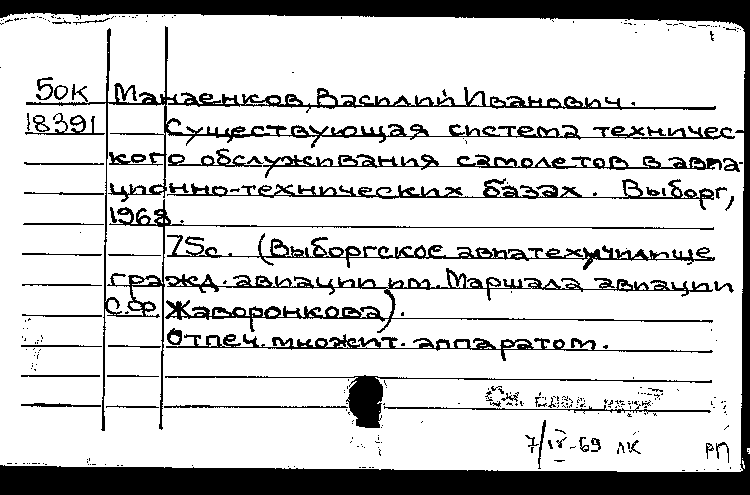 50К Манаенков, Василий Иванович.
18391 Существующая система техничес-
кого обслуживания самолетов в авиа-
ционно-технических базах. Выборг,
1968.
75с. (Выборгское авиатехучилище
гражд. авиации им. Маршала авиации
С.Ф. Жаворонкова).
Отпеч. множит. аппаратом.
См. след. карт.
7/IV-69 ЛК РП